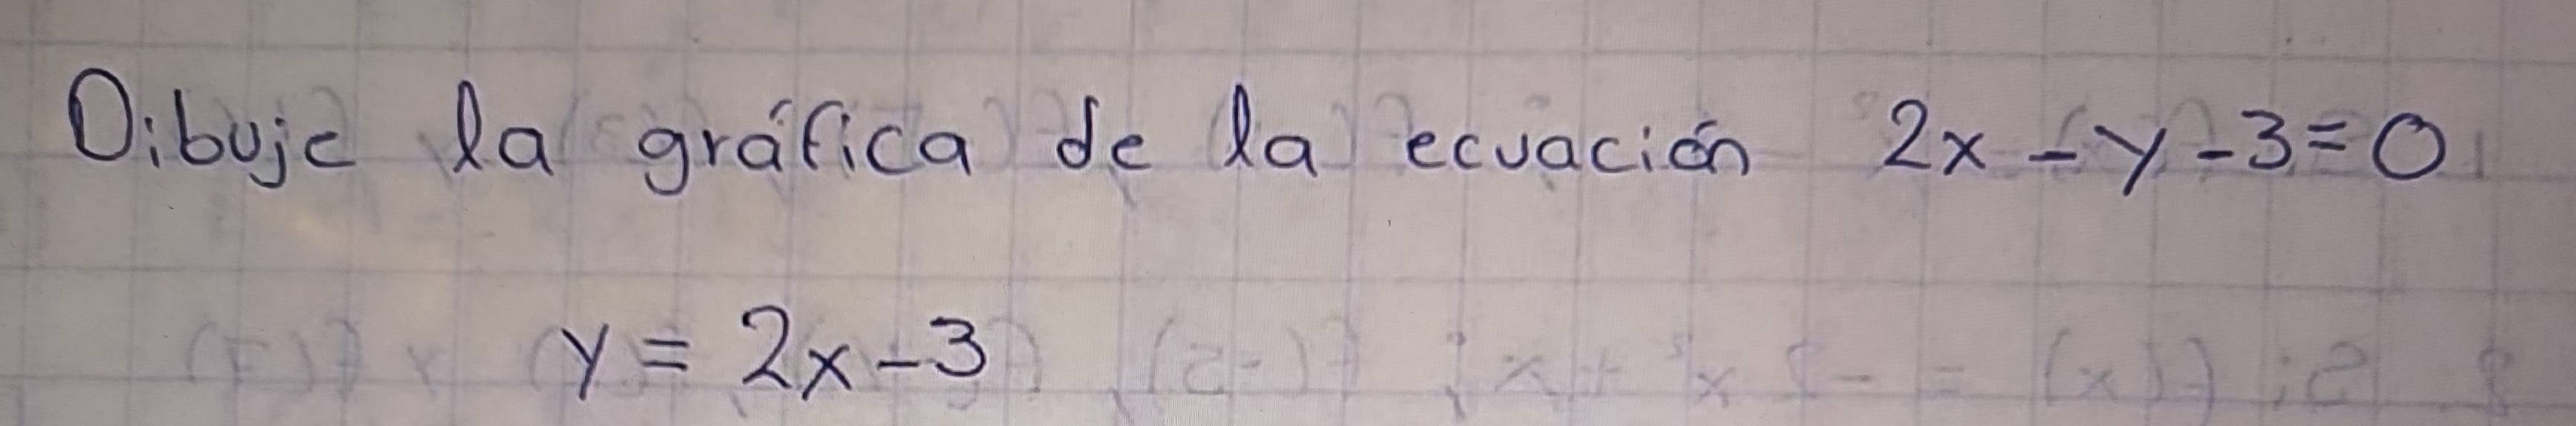 Dibuje la gráfica de la ecuación 2x - y - 3 = 0
y = 2x - 3